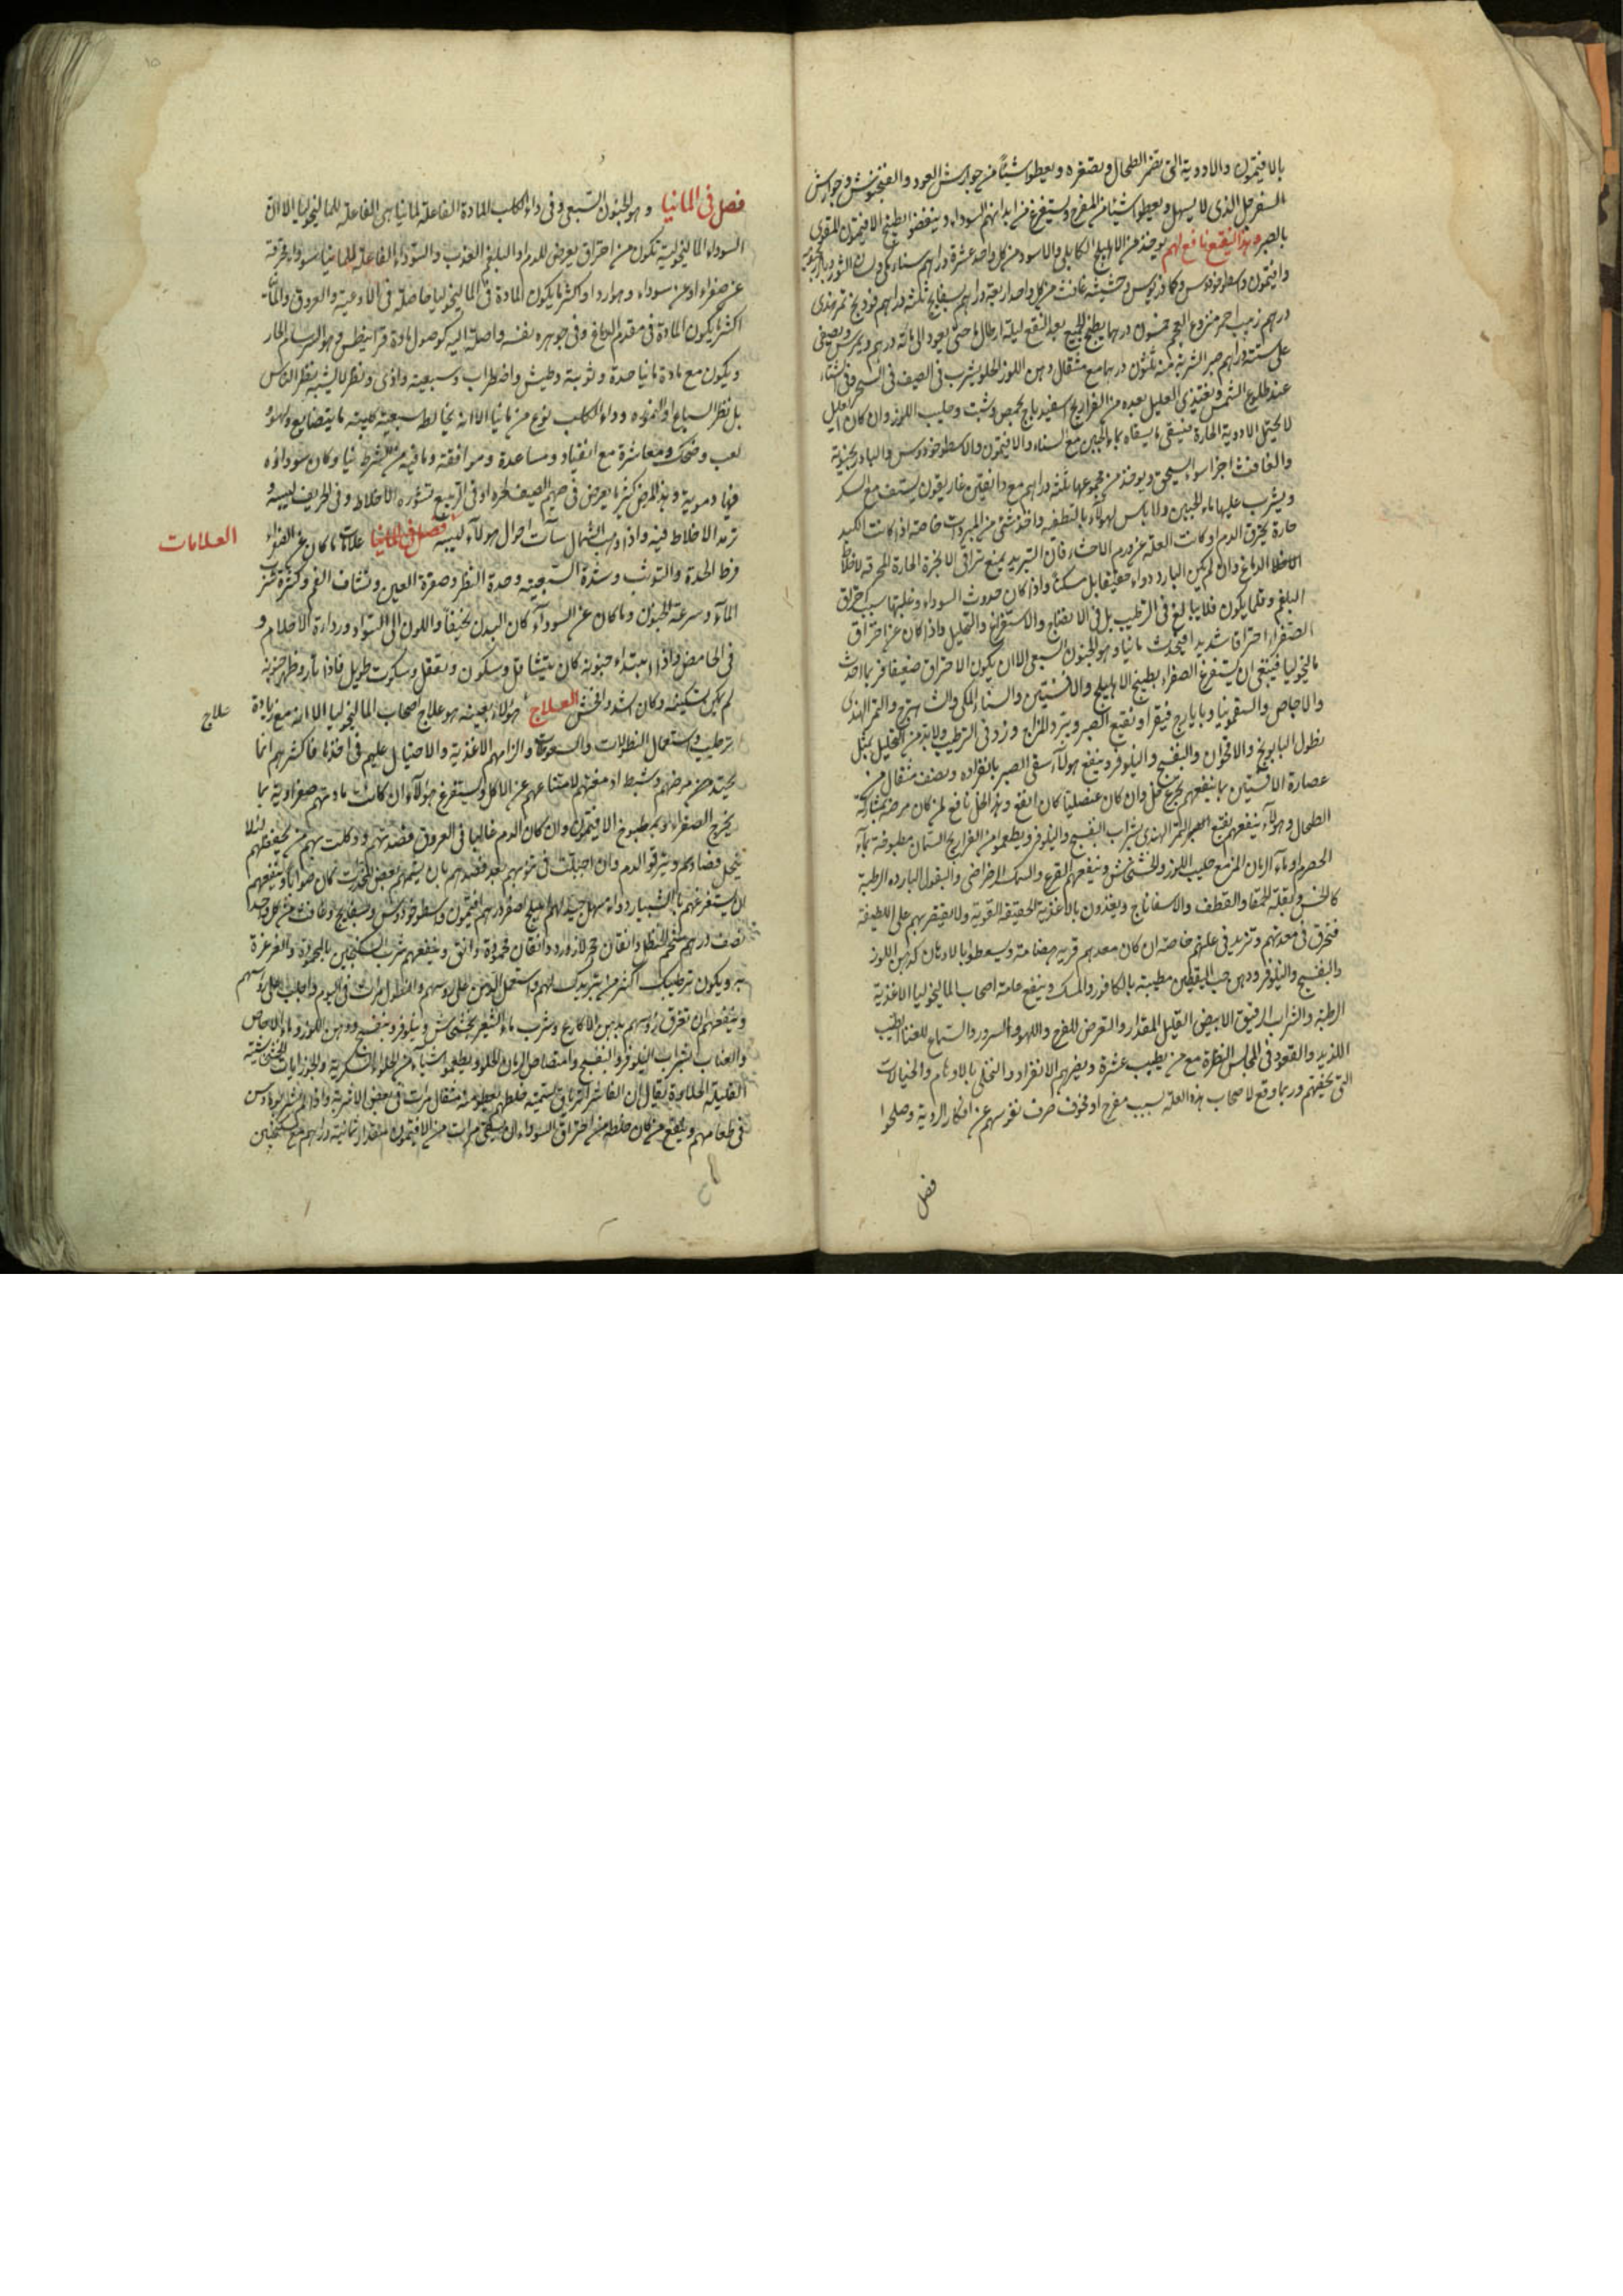 بالافيتمون والادوية التى تضمر الطحال وتصغره ويعطوا شيئا من جوارش العود والفنجنوش وجوارش
السفرجل الذى لا يسهل ويعطوا شيئا من المفرح ويستفرغ من ابدانهم السوداء وينفضوا بطبيخ الافيتمون المقوى
بالصبر وهذا النقيع نافع لهم يوخذ من الاهليلج الكابلى والاسود من كل واحد عشرة دراهم سناء مكى ولسان الثور
وافيتمون واسطوخودوس وكمافريوس وحشيشة غافت من كل واحد اربعة دراهم بسفايج ثلثة دراهم فودنج تمر هندى
درهم زبيب احمر منزوع العجم خمسون درهما يطبخ الجميع بعد النقع ليلة ارطال ماء حتى يعود الى مائة درهم ويمرس ويصفى
على ستة دراهم صبر الشربة منه ثلثون درهما مع مثقال دهن اللوز الحلو يشرب فى الصيف فى السحر وفى الشتاء
عند طلوع الشمس ويغتذى العليل بعده من الفراريج اسفيدباج بحمص وشبت وحليب اللوز وان كان العليل
لا يحتمل الادوية الحارة فينبغى ما يسقاه ماء الجبن مع السناء والافيتمون والاسطوخودوس والبادرنجبوية
والغافت اجزاء سواء يسحق ويوخذ من مجموعها ثلثة دراهم مع دانقين غاريقون يستف مع سكر
ويشرب عليها ماء الجبن ولا باس لهولاء بالتطفية واخذ شئ من المبردات خاصة اذا كانت الكبد
حارة يحترق الدم او كانت العلة من ورم الاحشاء فان التبريد يمنع تراقى الابخرة الحارة المحرقة لاخلاط
الدماغ وان لم يكن البارد دواء حقيقيا بل مسكنا واذا كان حدوث السوداء وغلبتها سبب احتراق
البلغم وقلما يكون فلا يبالغ فى الترطيب بل فى الانضاج والاستفراغ والتحليل واذا كان عن احتراق
الصفراء احتراقا شديدا فيحدث مانيا وهو الجنون السبعى الا ان يكون الاحتراق ضعيفا فربما احدث
ماليخوليا فينبغى ان يستفرغ الصفراء بطبيخ الاهليلج والافسنتين والسناء المكى والشاهترج والتمر الهندى
والاجاص والسقمونيا وبايارج فيقرا ونقيع الصبر ويبرد المزاج وزد فى الترطيب ولا بد من التحليل بمثل
نطول البابونج والاقحوان والبنفسج والنيلوفر وينفع هولاء سقى الصبر بانفراده ونصف مثقال من
عصارة الافسنتين مما ينفعهم تجرع خل وان كان عنصليا كان انفع وهذا الخل نافع لمن كان مرضه بمشاركة
الطحال وهولاء ينفعهم نقيع الصبر التمر الهندى بشراب البنفسج والنيلوفر ويطعموا من الفراريج السمان مطبوخة بماء
الحصرم او ماء الرمان المز مع حليب اللوز والخشخاش وينفعهم القرع والسمك الرضراضى والبقول الباردة الرطبة
كالخس وبقلة الحمقا والقطف والاسفاناج ويغذون بالاغذية الخفيفة القوية ولا يقتصر بهم على اللطيفة
فتحرق فى معدتهم وتزيد فى علتهم خاصة ان كان معدهم قوية هضامة ويسعطوا بالادهان كدهن اللوز
والبنفسج والنيلوفر ودهن حب اليقطين مطيبة بالكافور والمسك وينفع عامة اصحاب الماليخوليا الاغذية
الرطبة والشراب الرقيق الابيض القليل المقدار والتعرض للفرح واللهو والسرور والسماع للغناء الطيب
اللذيذ والقعود فى المجالس النظرة مع من يطيب عشرة ويضرهم الانفراد والتخلى بالاوهام والخيالات
التى تخيفهم وربما وقع لاصحاب هذه العلة بسبب مفرح او مخوف صرف نفوسهم عن افكار الردية وصلحوا
فصل
فصل فى المانيا وهو الجنون السبعى وفى داء الكلب المادة الفاعلة لمانيا هى الفاعلة للماليخوليا الا ان
السوداء الماليخولية تكون من احتراق يعرض للدم او البلغم العذب والسوداء الفاعلة للمانيا سوداء محرقة
عن صفراء او عن سوداء وهو اردا واكثر ما يكون المادة فى الماليخوليا حاصلة فى الاوعية والعروق والمانيا
اكثر ما يكون المادة فى مقدم الدماغ وفى جوهره نفسه واصلة اليه كوصول مادة قرانيطس وهو السرسام الحار
ويكون مع مادة مانيا حدة وتوثب وطيش واضطراب وسبعية واذى ونظر لا يشبه نظر الناس
بل نظر السباع او النمور وداء الكلب نوع من مانيا الا انه يخالط سبعية كلبية ما يتصنايع ولهو
لعب وضحك ومعاشرة مع انقياد ومساعدة وموافقة وما فيه من الشر ط نيا وكان سوداؤه
فيها دموية وهذا المرض كثيرا يعرض فى صميم الصيف لحره او فى الربيع لتثويره الاخلاط وفى الخريف ليبسه و
ترمد الاخلاط فيه واذا وهبت الشمال ساءت احوال هولاء ليبسه علامات ما كان عن الصفراء
العلامات
فرط الحدة والتوثب وشدة السبعية وحدة النظر وصفرة العين ونشاف الفم وكثرة شرب
الماء وسرعة الجنون وما كان عن السوداء كان البدن نحيفا واللون الى السواد ورداءة الاحلام و
فى الحامض واذا ابتداء جنونه كان يتثاقل وسكون وتعقل وسكوت طويل فاذا ثار وظهر جنونه
لم يمكن تسكينه وكان اشد وافحش العلاج هولاء بعينه هو علاج اصحاب الماليخوليا الا انه مع زيادة
علاج
ترطيب واستعمال النطولات والسعوطات والزامهم الاغذية والاحتيال عليهم فى اخذها فاكثرهم انما
يحتد من مرضهم وشبط ادمغتهم لامتناعهم عن الاكل ويستفرغ هولاء ان كانت مادتهم صفراوية بما
يخرج الصفراء او بمطبوخ الافيتمون وان كان الدم غالبا فى العروق فصدتهم ووكلت بهم من يحفظهم لئلا
ينحل فصادهم وينزفوا الدم وان اجتلبت فى نومهم بعد فصدهم بان يشمهم بعض المخدرات كان صوابا وينفعهم
ان يستفرغهم بالشيبار دواء مسهل جيد لهم اهليلج اصفر درهم افيتمون واسطوخودوس وبسفايج وغافت من كل واحد
نصف درهم شحم الحنظل دانقان حجر لازورد دانقان محمودة دانق وينفعهم شرب السكنجبين بالمحمودة والغرغرة
به ويكون ترطيبك اكثر من تبريدك لهم واستعمل الدهن على رؤسهم والنطول مرات فى اليوم واجلب على رؤسهم
وينفعهم ان تغرق رؤسهم بدهن الاكارع وشرب ماء الشعير بخشخاش ونيلوفر وبنفسج ودهن اللوز وماء الاجاص
والعناب بشراب النيلوفر والبنفسج وامتصاص الرمان الحلو ويطعموا شياء من الحلواء السكرية والجوزابات الخشخاشية
القليلة الحلاوة يقال ان الفاشرا ترياق لتسميته خلطهم يعطى منه مثقال مرات فى بعض الاشربة واذا لم يشربوها دس
فى طعامهم وينفع من كان خلطه من احتراق السوداء ان يسقى مرات من الافيتمون لمقدار ثمانية دراهم مع سكنجبين